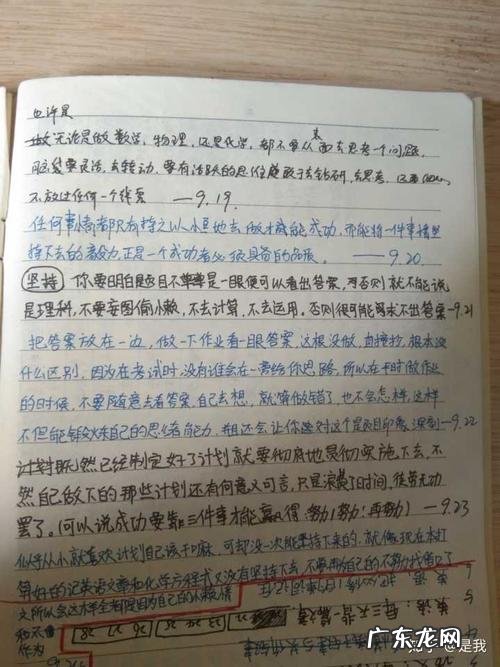 也许是
做无论是做数学,物理,还是化学,都不要从表面去思考一个问题,
脑袋要灵活,去转动,要有活跃的思维度敢于去钻研,去思考,还要
不放过任何一个线索 —9.19.
任何事情都只有持之以恒地去做才能成功,而能将一件事情坚
持下去的毅力,正是一个成功者必须具备的品质。 —9.20.
坚持 你要明白题目不单单是一眼便可以看出答案,否则就不能说
是理科,不要妄图偷小懒,不去计算,不去运用。否则很可能求不出答案—9.21
把答案放在一边,做一下作业看一眼答案,这根没做,直接抄,根本没
什么区别,因为在考试时,没有谁会在一旁给你思路,所以在平时做作业
的时候,不要随意去看答案,自己去想,就算做错了,也不会怎样,这样
不但能够锻炼自己的思维能力,并且还会让你对这个题目印象深刻—9.22
计划既然已经制定好了计划就要彻底地贯彻实施下去,不
然自己做下的那些计划还有何意义可言,只是浪费了时间,徒劳无功
罢了。(可以说成功要靠三件事才能赢得:努力!努力!再努力) —9.23
似乎从小就喜欢计划自己该干嘛,可却没一次能坚持下来的,就像现在本打
算好的记英语文章和化学方程式又没有坚持下去,不要为自己的不努力找借口了
又所以会这样全都是因为自己的小懒惰
和不
作为
26 27 28
知乎 @是我
广东龙网